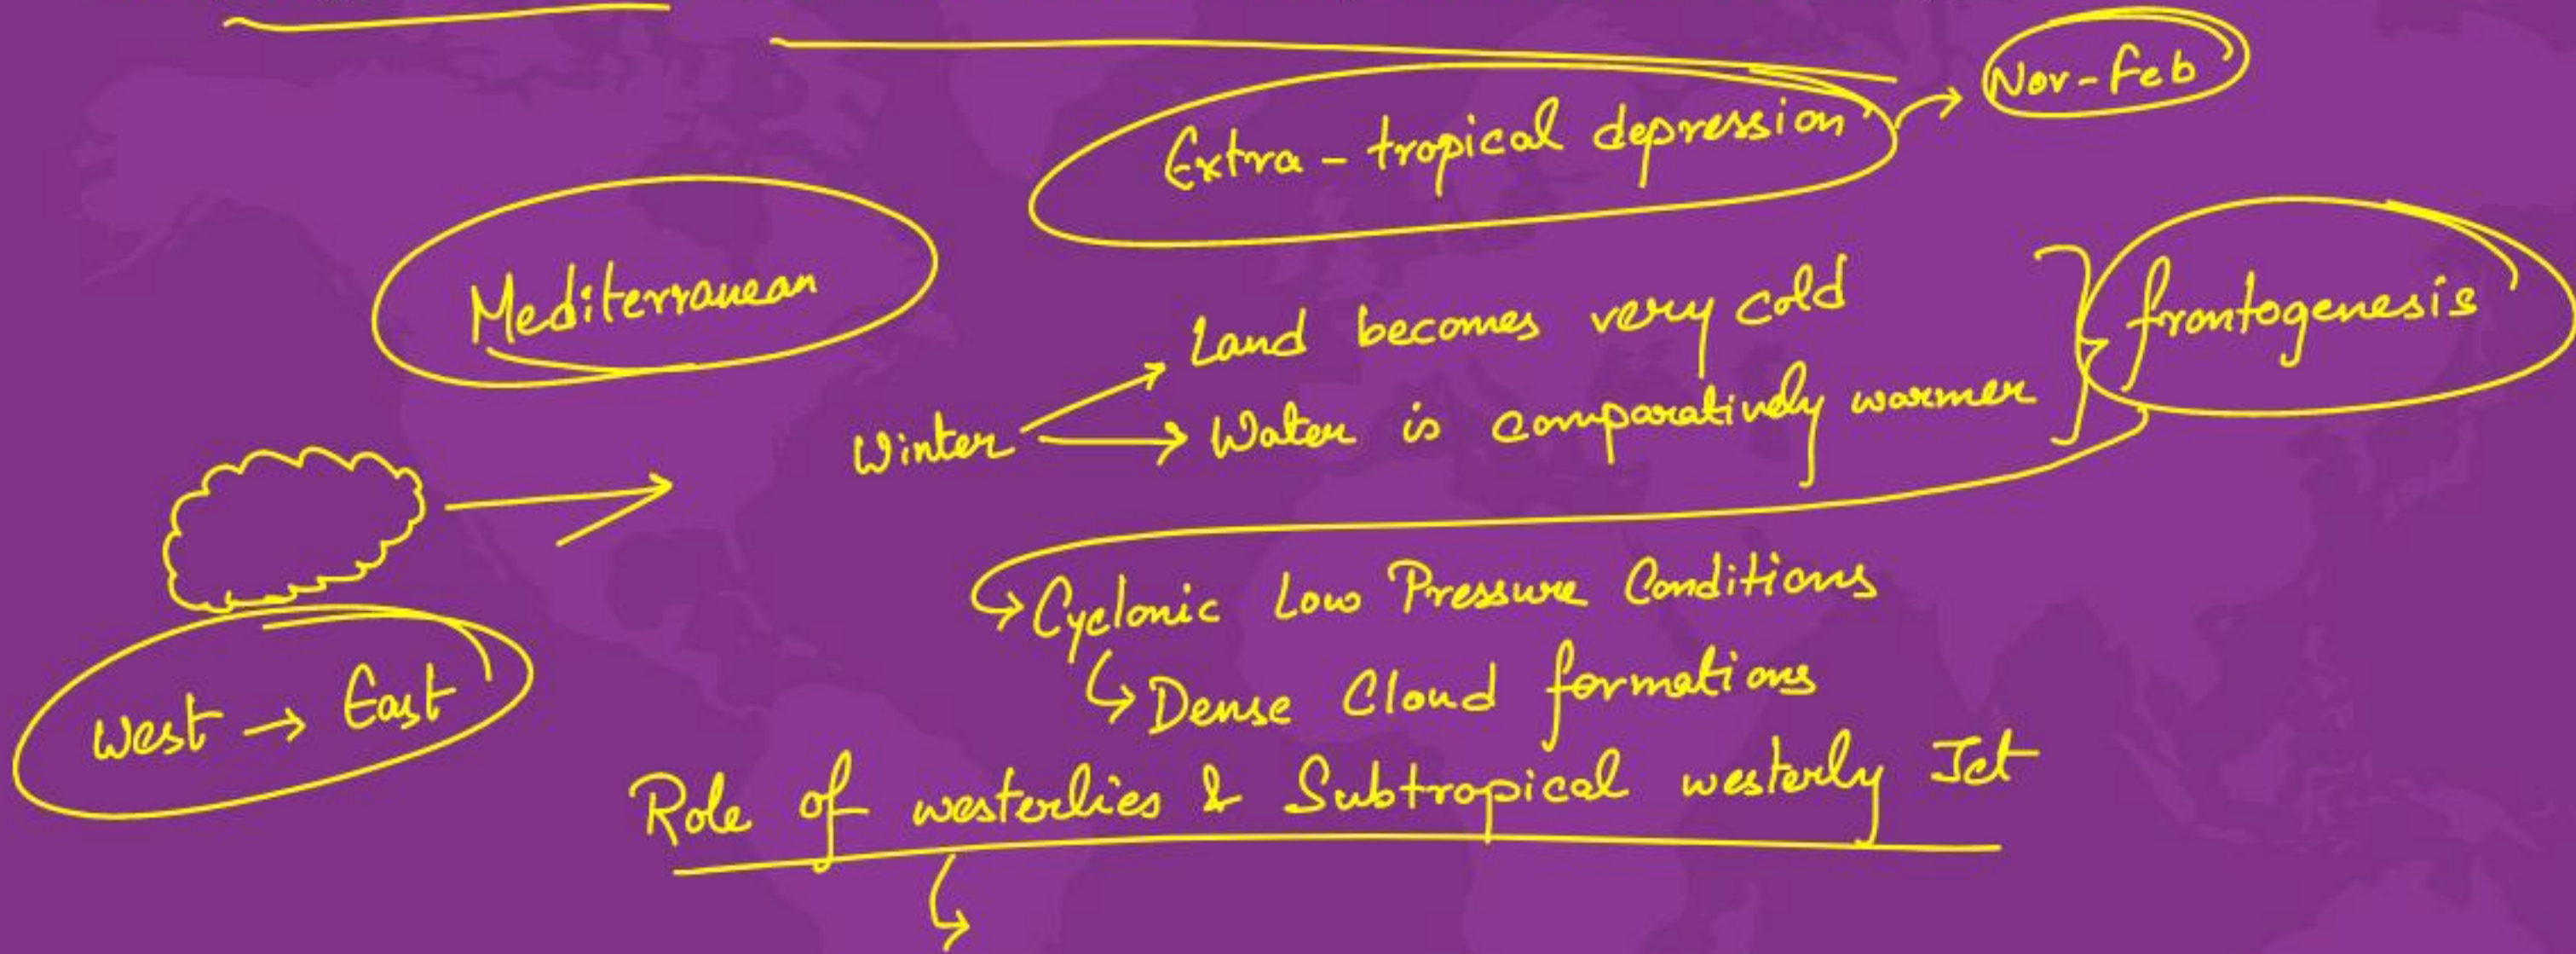 Extra-tropical depression → Nov-Feb
Mediterranean
Winter → Land becomes very cold
→ Water is comparatively warmer
frontogenesis
Cyclonic Low Pressure Conditions
Dense Cloud formations
West → East
Role of westerlies & Subtropical westerly Jet